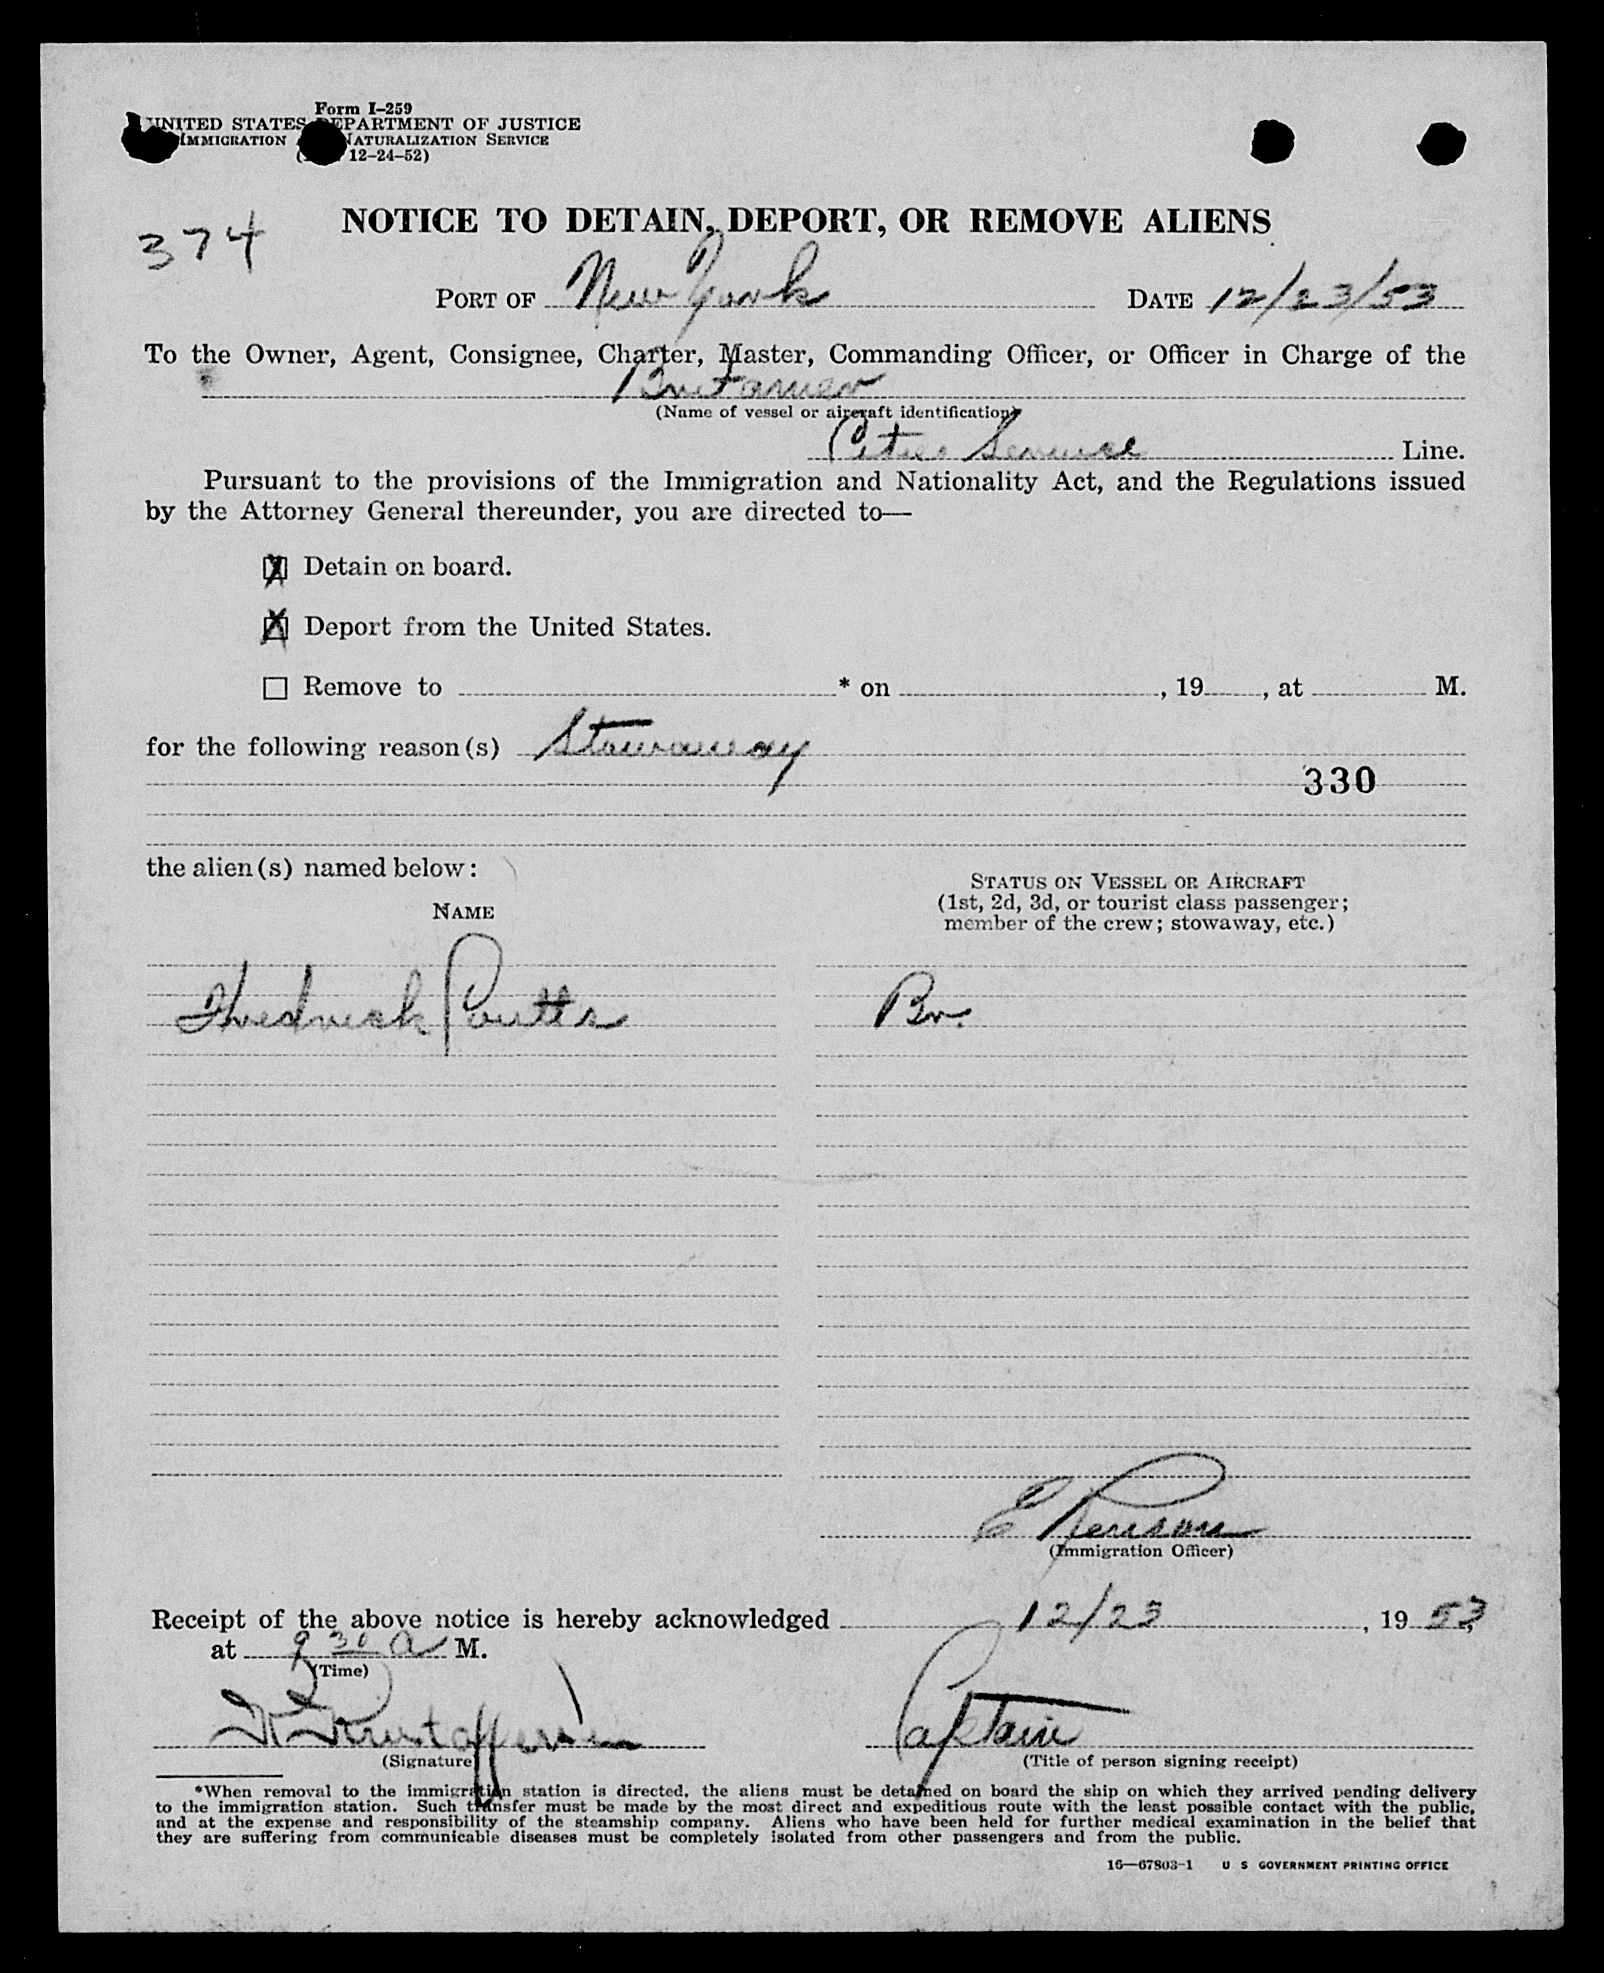 Form I-259
UNITED STATES DEPARTMENT OF JUSTICE
IMMIGRATION NATURALIZATION SERVICE
( 12-24-52)
374
NOTICE TO DETAIN, DEPORT, OR REMOVE ALIENS
PORT OF New York DATE 12/23/53
To the Owner, Agent, Consignee, Charter, Master, Commanding Officer, or Officer in Charge of the
(Name of vessel or aircraft identification)
Cities Service Line.
Pursuant to the provisions of the Immigration and Nationality Act, and the Regulations issued
by the Attorney General thereunder, you are directed to—
X Detain on board.
X Deport from the United States.
☐ Remove to * on , 19 , at M.
for the following reason(s) Stowaway
330
the alien(s) named below:
NAME
STATUS ON VESSEL OR AIRCRAFT
(1st, 2d, 3d, or tourist class passenger;
member of the crew; stowaway, etc.)
Frederick Coutts Br.
E
(Immigration Officer)
Receipt of the above notice is hereby acknowledged 12/23, 19 53,
at 9 30 A M.
(Time)
Kristoffersen Captain
(Signature) (Title of person signing receipt)
*When removal to the immigration station is directed, the aliens must be detained on board the ship on which they arrived pending delivery
to the immigration station. Such transfer must be made by the most direct and expeditious route with the least possible contact with the public,
and at the expense and responsibility of the steamship company. Aliens who have been held for further medical examination in the belief that
they are suffering from communicable diseases must be completely isolated from other passengers and from the public.
16—67803-1 U S GOVERNMENT PRINTING OFFICE